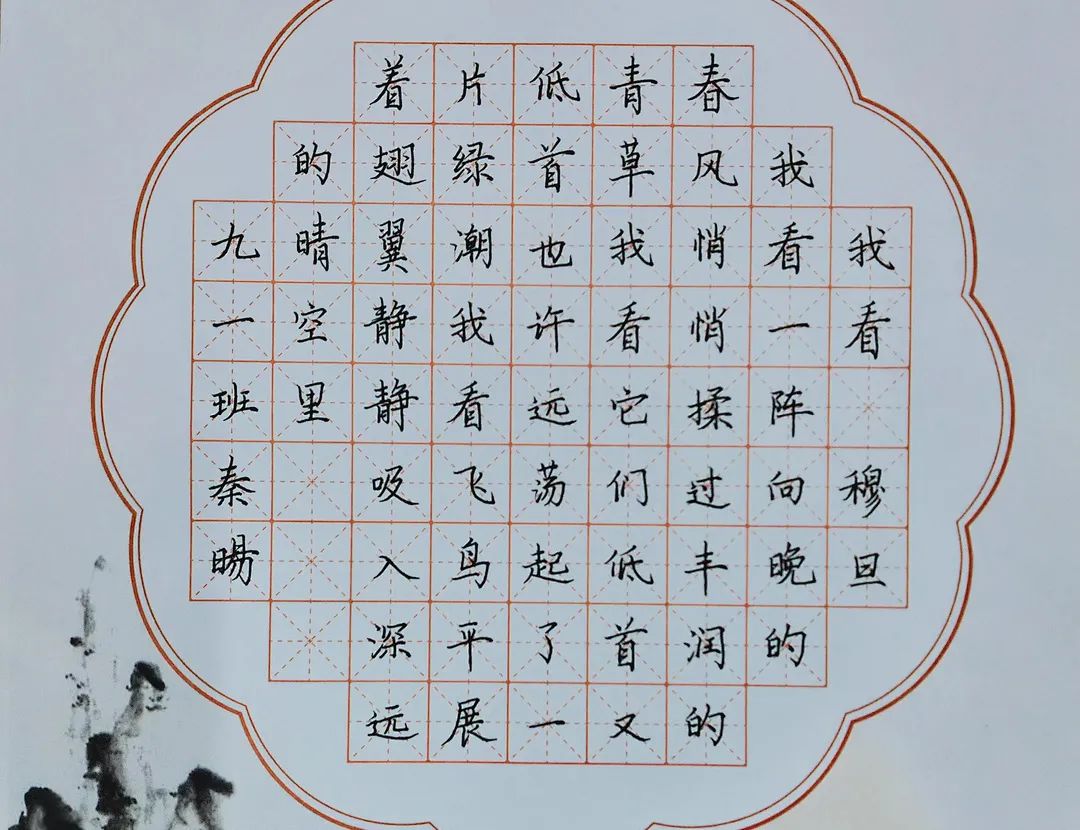 我看 穆旦
我看一阵向晚的
春风悄悄揉过丰润的
青草我看它们低首又
低首也许远荡起了一
片绿潮我看飞鸟平展
着翅翼静静吸入深远
的晴空里
九一班秦